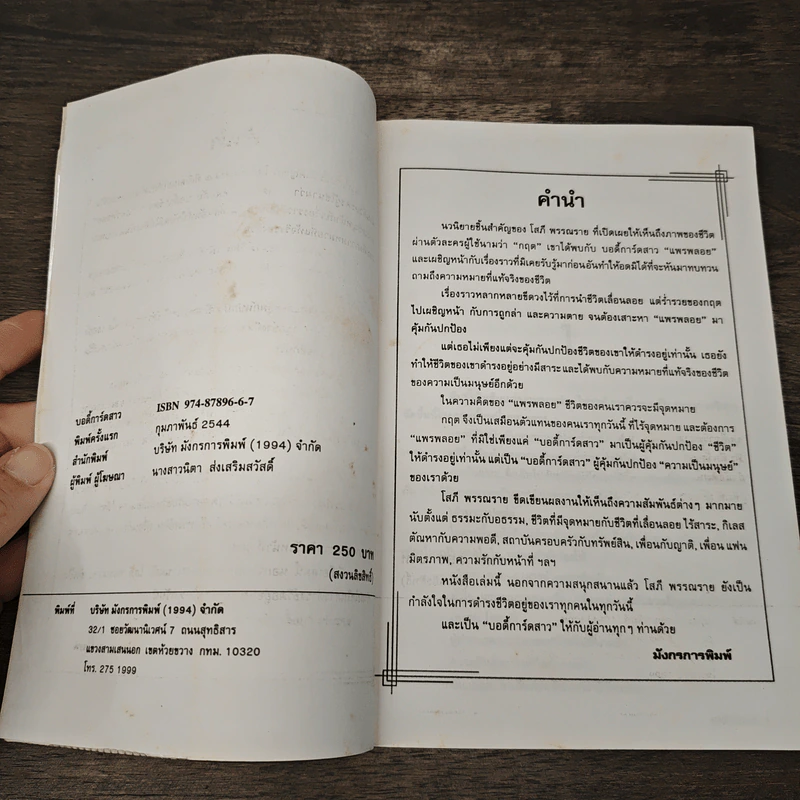 ISBN 974-87896-6-7
บอดี้การ์ดสาว
พิมพ์ครั้งแรก กุมภาพันธ์ 2544
สำนักพิมพ์ บริษัท มังกรการพิมพ์ (1994) จำกัด
ผู้พิมพ์ ผู้โฆษณา นางสาวนิตา ส่งเสริมสวัสดิ์
ราคา 250 บาท
(สงวนลิขสิทธิ์)
พิมพ์ที่ บริษัท มังกรการพิมพ์ (1994) จำกัด
32/1 ซอยวัฒนานิเวศน์ 7 ถนนสุทธิสาร
แขวงสามเสนนอก เขตห้วยขวาง กทม. 10320
โทร. 275 1999
คำนำ
นวนิยายชิ้นสำคัญของ โสภี พรรณราย ที่เปิดเผยให้เห็นถึงภาพของชีวิต
ผ่านตัวละครผู้ใช้นามว่า "กฤต" เขาได้พบกับ บอดี้การ์ดสาว "แพรพลอย"
และเผชิญหน้ากับเรื่องราวที่มิเคยรับรู้มาก่อนอันทำให้อดมิได้ที่จะหันมาทบทวน
ถามถึงความหมายที่แท้จริงของชีวิต
เรื่องราวหลากหลายขีดวงไว้ที่การนำชีวิตเลื่อนลอย แต่ร่ำรวยของกฤต
ไปเผชิญหน้า กับการถูกล่า และความตาย จนต้องเสาะหา "แพรพลอย" มา
คุ้มกันปกป้อง
แต่เธอไม่เพียงแต่จะคุ้มกันปกป้องชีวิตของเขาให้ดำรงอยู่เท่านั้น เธอยัง
ทำให้ชีวิตของเขาดำรงอยู่อย่างมีสาระ และได้พบกับความหมายที่แท้จริงของชีวิต
ของความเป็นมนุษย์อีกด้วย
ในความคิดของ "แพรพลอย" ชีวิตของคนเราควรจะมีจุดหมาย
กฤต จึงเป็นเสมือนตัวแทนของคนเราทุกวันนี้ ที่ไร้จุดหมาย และต้องการ
"แพรพลอย" ที่มิใช่เพียงแค่ "บอดี้การ์ดสาว" มาเป็นผู้คุ้มกันปกป้อง "ชีวิต"
ให้ดำรงอยู่เท่านั้น แต่เป็น "บอดี้การ์ดสาว" ผู้คุ้มกันปกป้อง "ความเป็นมนุษย์"
ของเราด้วย
โสภี พรรณราย ขีดเขียนผลงานให้เห็นถึงความสัมพันธ์ต่างๆ มากมาย
นับตั้งแต่ ธรรมะกับอธรรม, ชีวิตที่มีจุดหมายกับชีวิตที่เลื่อนลอย ไร้สาระ, กิเลส
ตัณหากับความพอดี, สถาบันครอบครัวกับทรัพย์สิน, เพื่อนกับญาติ, เพื่อน แฟน
มิตรภาพ, ความรักกับหน้าที่ ฯลฯ
หนังสือเล่มนี้ นอกจากความสนุกสนานแล้ว โสภี พรรณราย ยังเป็น
กำลังใจในการดำรงชีวิตอยู่ของเราทุกคนในทุกวันนี้
และเป็น "บอดี้การ์ดสาว" ให้กับผู้อ่านทุกๆ ท่านด้วย
มังกรการพิมพ์